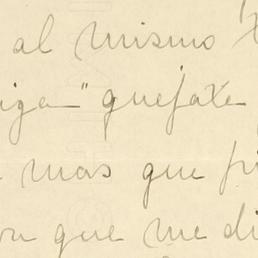 al mismo
iga" quejate
mas que
que me di